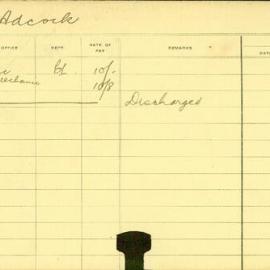 Adcock
OFFICE DEPT. RATE OF PAY REMARKS DAT
10/-
Mechanic 10/8
Discharged